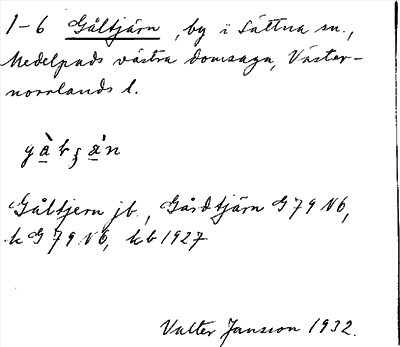 1-6 Gåltjärn, by i Sättna sn.,
Medelpads västra domsaga, Väster-
norrlands l.
Gåltjern jb., Gårdtjärn G 79 N6,
k G 79 N6, kb 1927
Valter Jansson 1932.